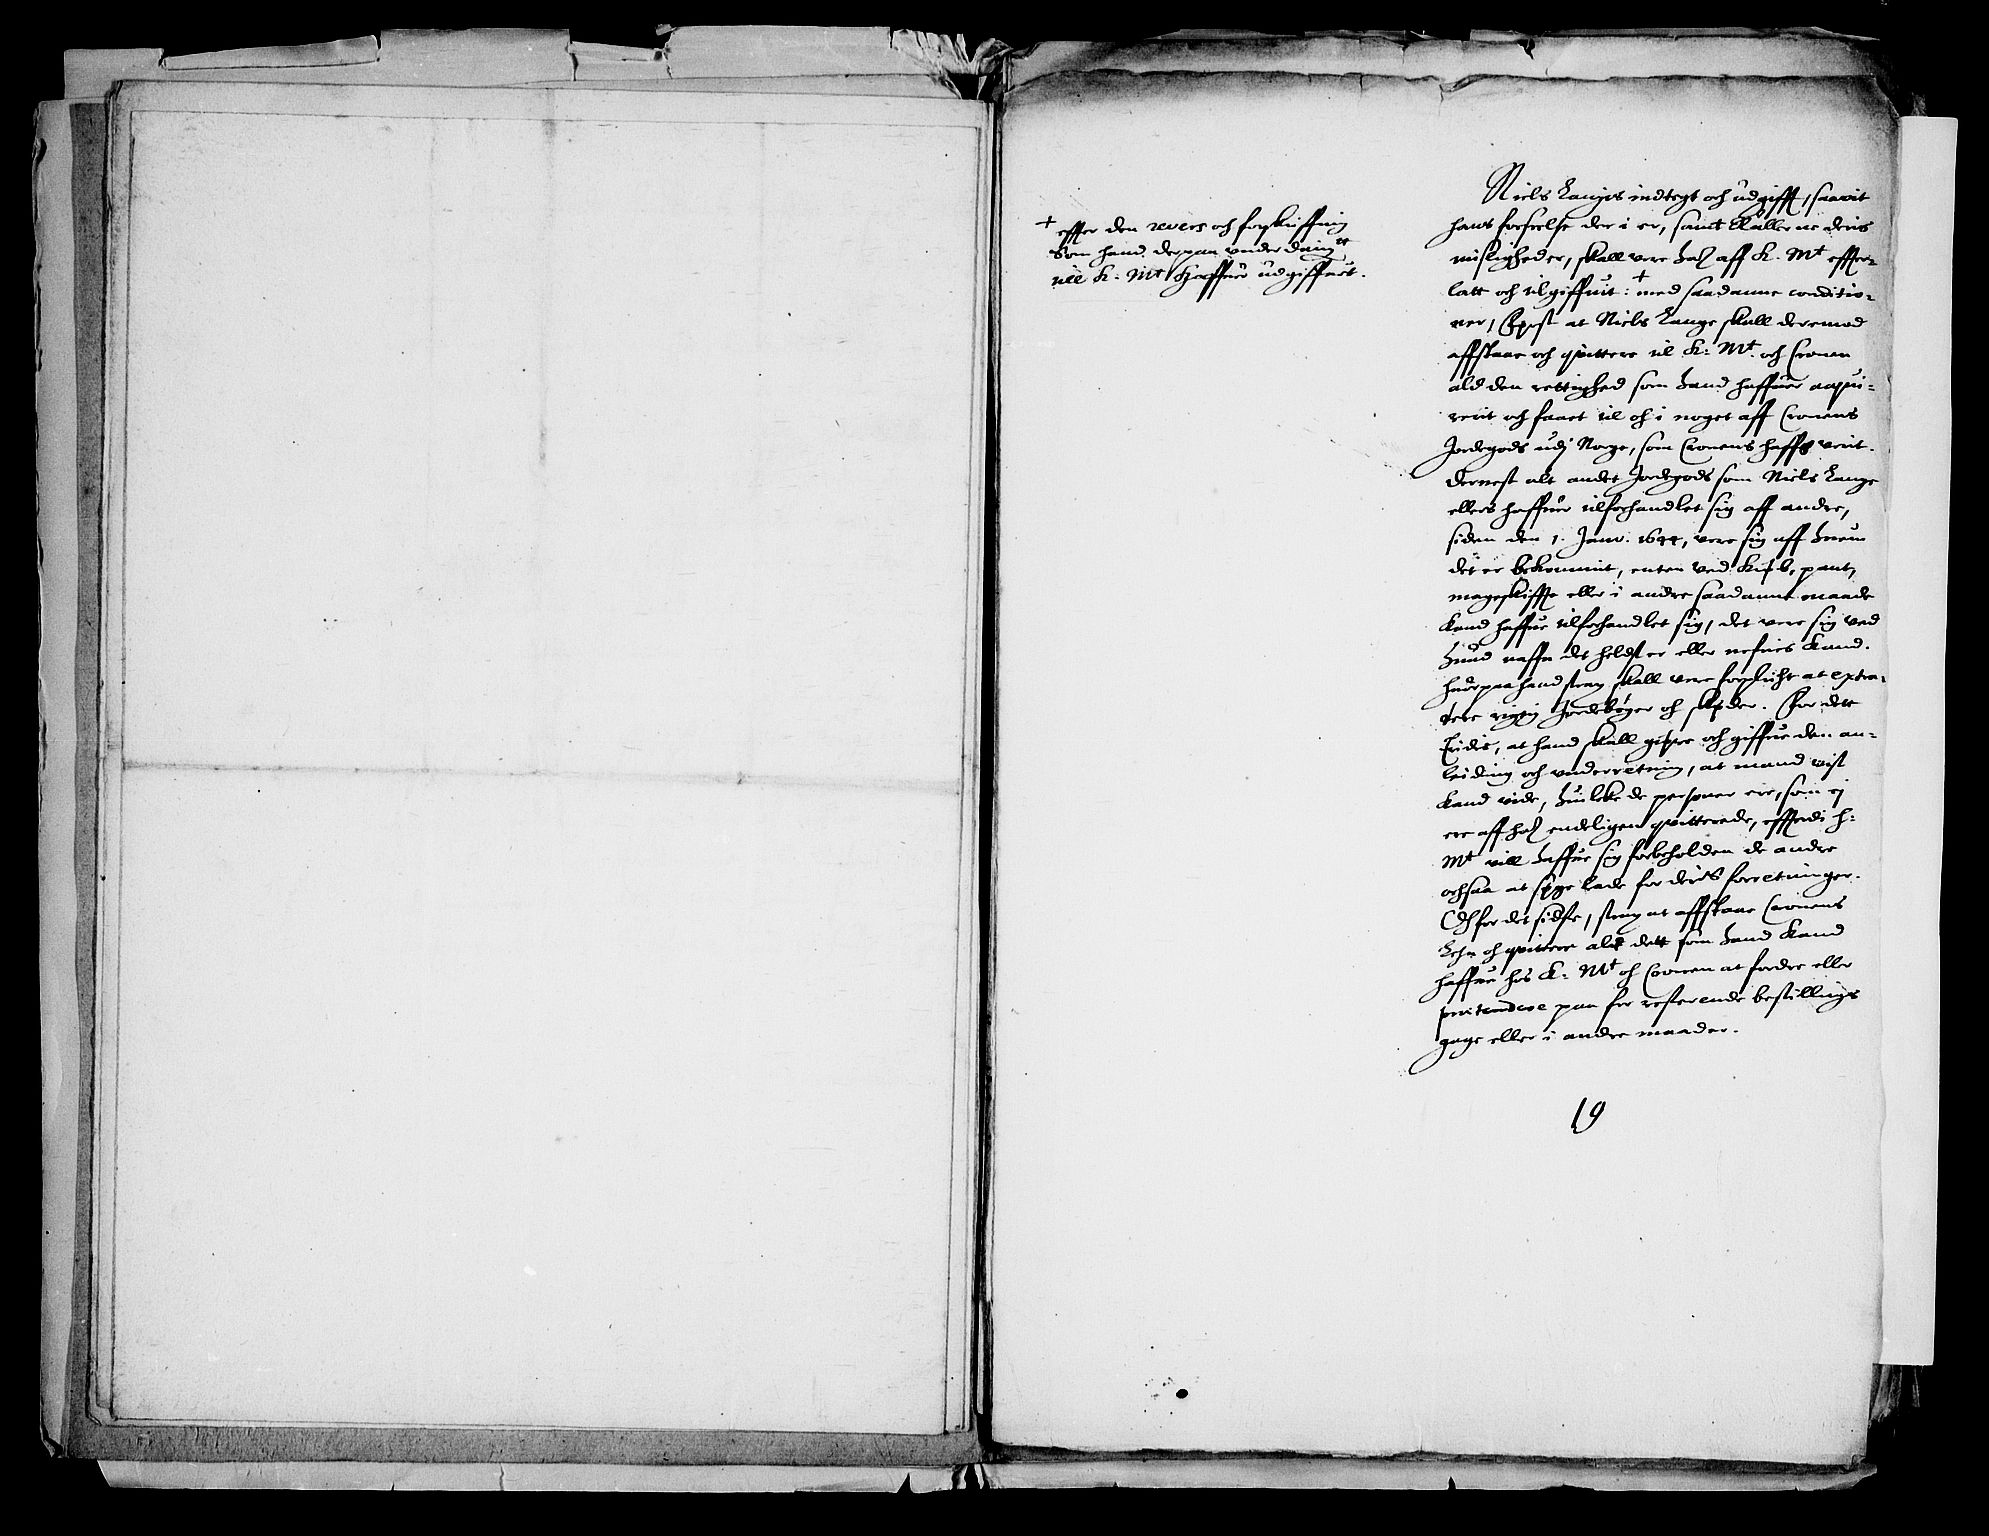 + effter den revers och forskriffning
som hand derpaa underdanigste
till K: Mt haffuer udgiffuet.
Niels Langes indtegt och udgifft, saavit
hans forseelse der i er, samt
misligheder, skall vere aff K. Mt effter-
latt och tilgiffuit: + med saadanne conditio-
ner, Først at Niels Lange skall deremod
affstaae och qvittere til K: Mt. och Cronen
ald den rettighed som hand haffuer acqui-
rerit och faaet til och i noget aff Cronens
Jordegods udj Norge, som Cronens haffr verit.
dernest alt andet Jordegods som Niels Lange
ellers haffuer tilforhandlet sig aff andre,
siden den 1. Janv. 1644, vere sig aff huem
det er bekommit, enten ved kiøb, pant,
mageskiffte eller i andre saadanne maade
kand haffue tilforhandlet sig, det vere sig ved
huad naffn det heldst er eller nefnes kand.
huorpaa hand strax skall vere forpliht at extra-
dere rigtig Jordebøger och skøder. For dett
Tridie, at hand skall giøre och giffue den an-
leiding och underretning, at mand vist
kand vide, huilcke de personer ere, som ej
ere aff endeligen qvitterede, efftterdi h:
Mt vill haffue sig forbeholden de andre
ochsaa at søge lade for deris forretninger.
Och for det sidste, strax at affstaae Cronens
Lehn och qvittere alt dett som hand kand
haffue hos K: Mt och Cronen at fordre eller
prætendere paa for resterende bestillings
gage eller i andre maader.
19